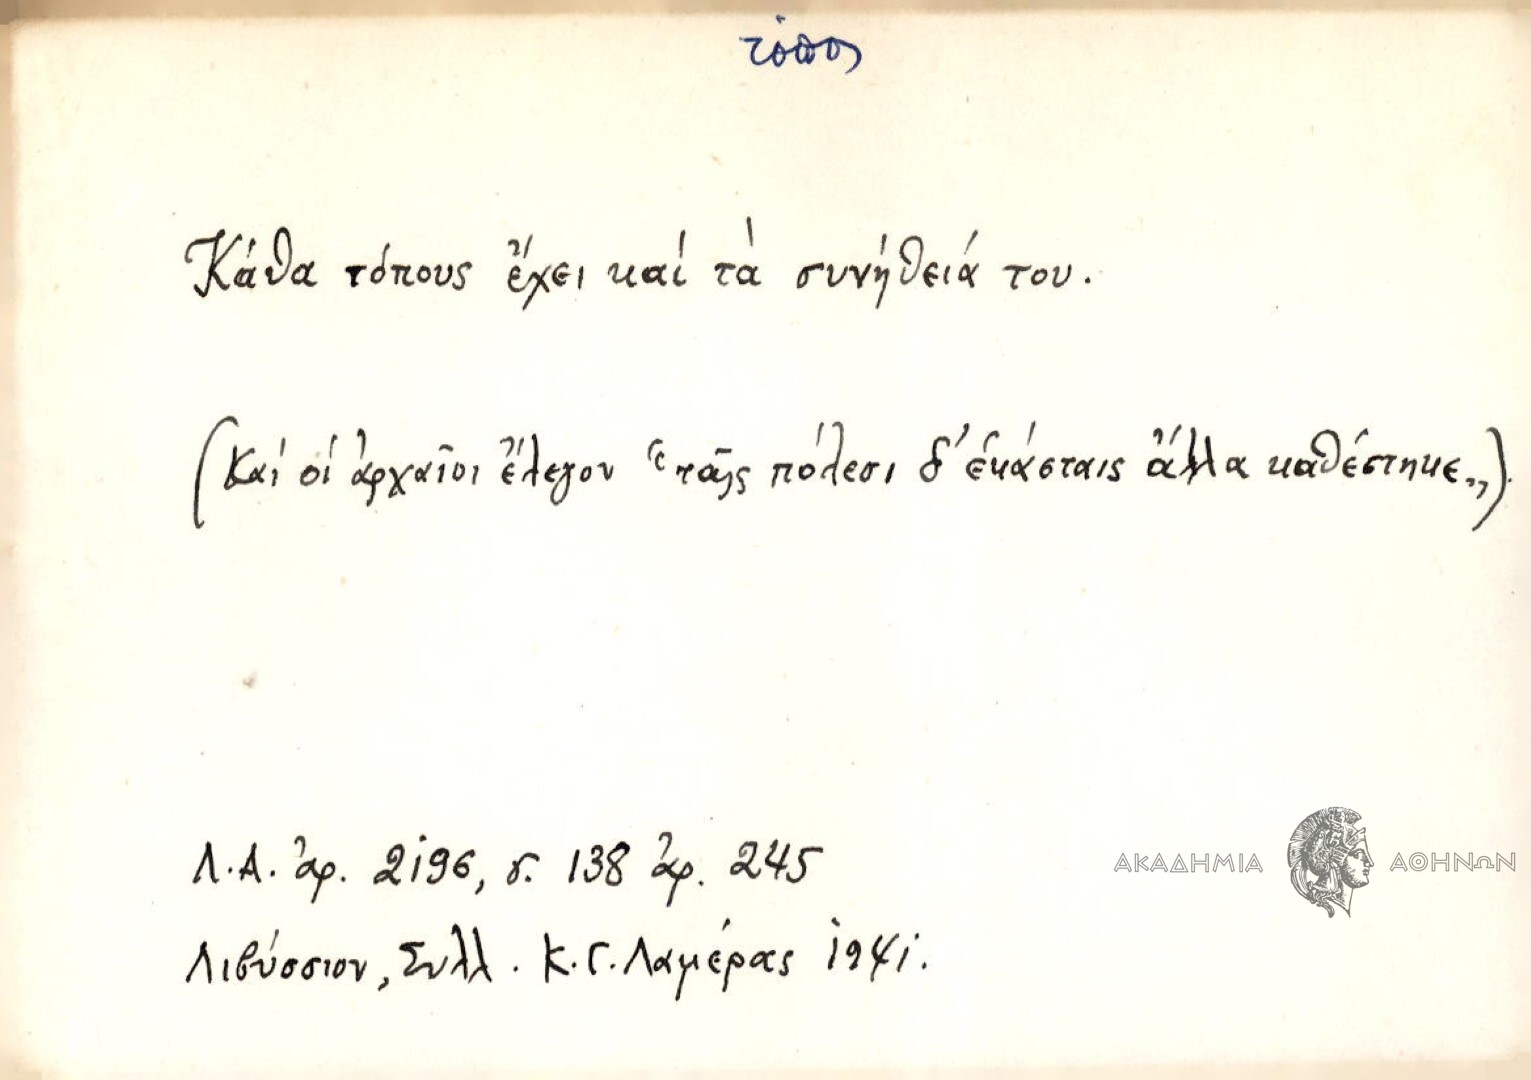 τόπος
Κάθα τόπους ἔχει καί τὰ συνήθειά του.
(Καί οἱ ἀρχαῖοι ἔλεγον “ταῖς πόλεσι δ’ ἑκάσταις ἄλλα καθέστηκε„).
Λ.Α. ἀρ. 2196, σ. 138 ἀρ. 245
ΑΚΑΔΗΜΙΑ ΑΘΗΝΩΝ
Λιβύσσιον, Συλλ. Κ.Γ. Λαμέρας 1941.